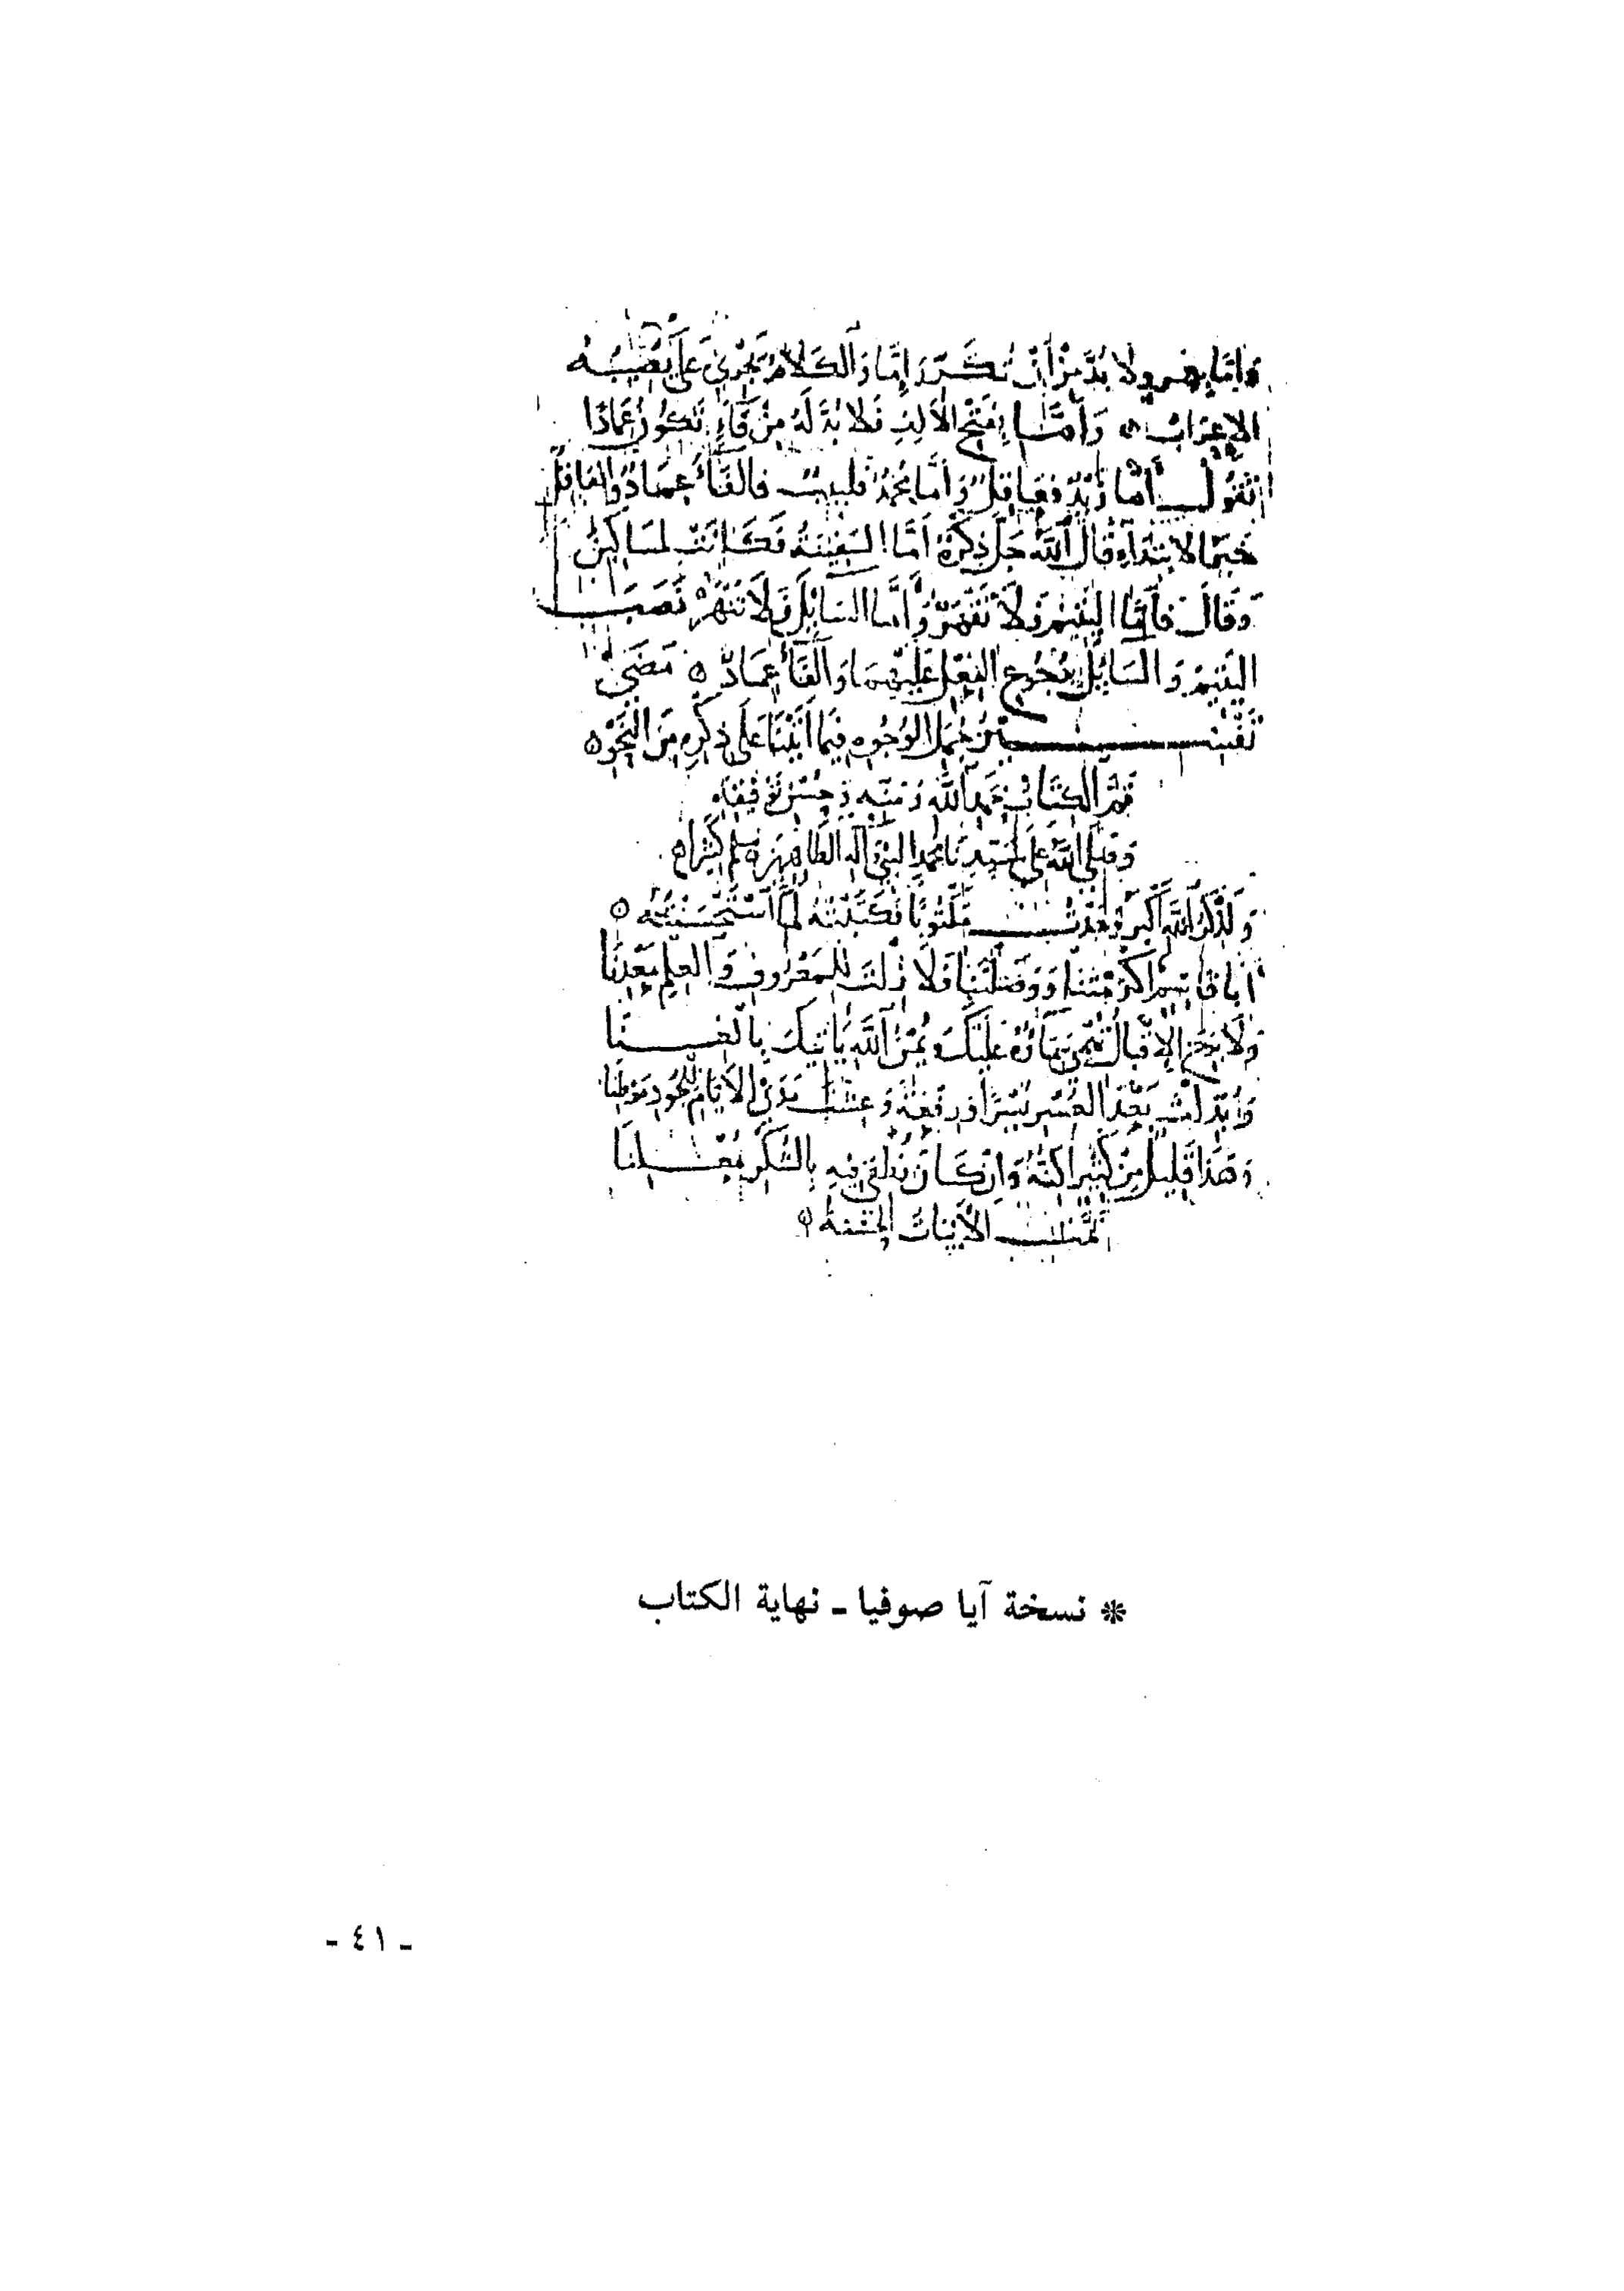 وَإِمَّا بعمرو ولا بُدَّ مِنْ أَنْ تُكَرِّرَ إِمَّا وَالكَلَامُ يَجْرِي عَلَى مَا يُصِيبُهُ
الإِعْرَابُ ه وَأَمَّا بِفَتْحِ الأَلِفِ فَلَا بُدَّ لَهُ مِنْ فَاءٍ تَكُونُ عِمَادًا
تَقُولُ أَمَّا زَيْدٌ فَعَاقِلٌ وَأَمَّا مُحَمَّدٌ فَلَبِيبٌ فالفَاءُ عِمَادٌ وَالعَاقِلُ
خَبَرُ الابْتِدَاءِ قَالَ اللَّهُ جَلَّ ذِكْرُهُ أَمَّا السَّفِينَةُ فَكَانَتْ لِمَسَاكِينَ
وَقَالَ فَأَمَّا اليَتِيمَ فَلَا تَقْهَرْ وَأَمَّا السَّايِلَ فَلَا تَنْهَرْ نَصَبَ
اليَتِيمَ وَالسَّايِلَ بِرُجُوعِ الفِعْلِ عَلَيْهِمَا وَالْفَاءُ عِمَادٌ ه مَضَى
تَفْسِيرُ جُمَلِ الوُجُوهِ فِيمَا أَتَيْنَا عَلَى ذِكْرِهِ مِنَ النَّحْوِ ه
تَمَّ الكِتَابُ بِحَمْدِ اللَّهِ وَمَنِّهِ وَحُسْنِ تَوْفِيقِهِ
وَصَلَّى اللَّهُ عَلَى سَيِّدِنَا مُحَمَّدٍ النَّبِيِّ وَآلِهِ الطَّاهِرِينَ وَسَلَّمَ كَثِيرًا ه
وَلَذِكْرُ اللَّهِ أَكْبَرُ وَجَدْتُ مَكْتُوبًا فَكَتَبْتُهُ لَمَّا اسْتَحْسَنْتُهُ ه
أبا قاسم أَكْرَمْتَنَا وَوَصَلْتَنَا فَلَا زِلْتَ لِلْمَعْرُوفِ وَالعِلْمِ مَعْدِنَا
وَلَا الإِقْبَالِ عَلَيْكَ وَمِنَ اللَّهِ يَأْتِيكَ بِالْغِنَا
بَعْدَ العُسْرِ يُسْرًا وَرِفْعَةً وَعِشْتَ مَدَى الأَيَّامِ لِلْجُودِ مَوْطِنَا
وَهَذَا قَلِيلٌ مِنْ كَثِيرٍ وَإِنْ كَانَ فِيهِ بِالشُّكْرِ مُعْلِنَا
تَمَّت الأَبْيَاتُ الحَسَنَةُ ه
* نسخة آيا صوفيا ـ نهاية الكتاب
ـ ٤١ ـ